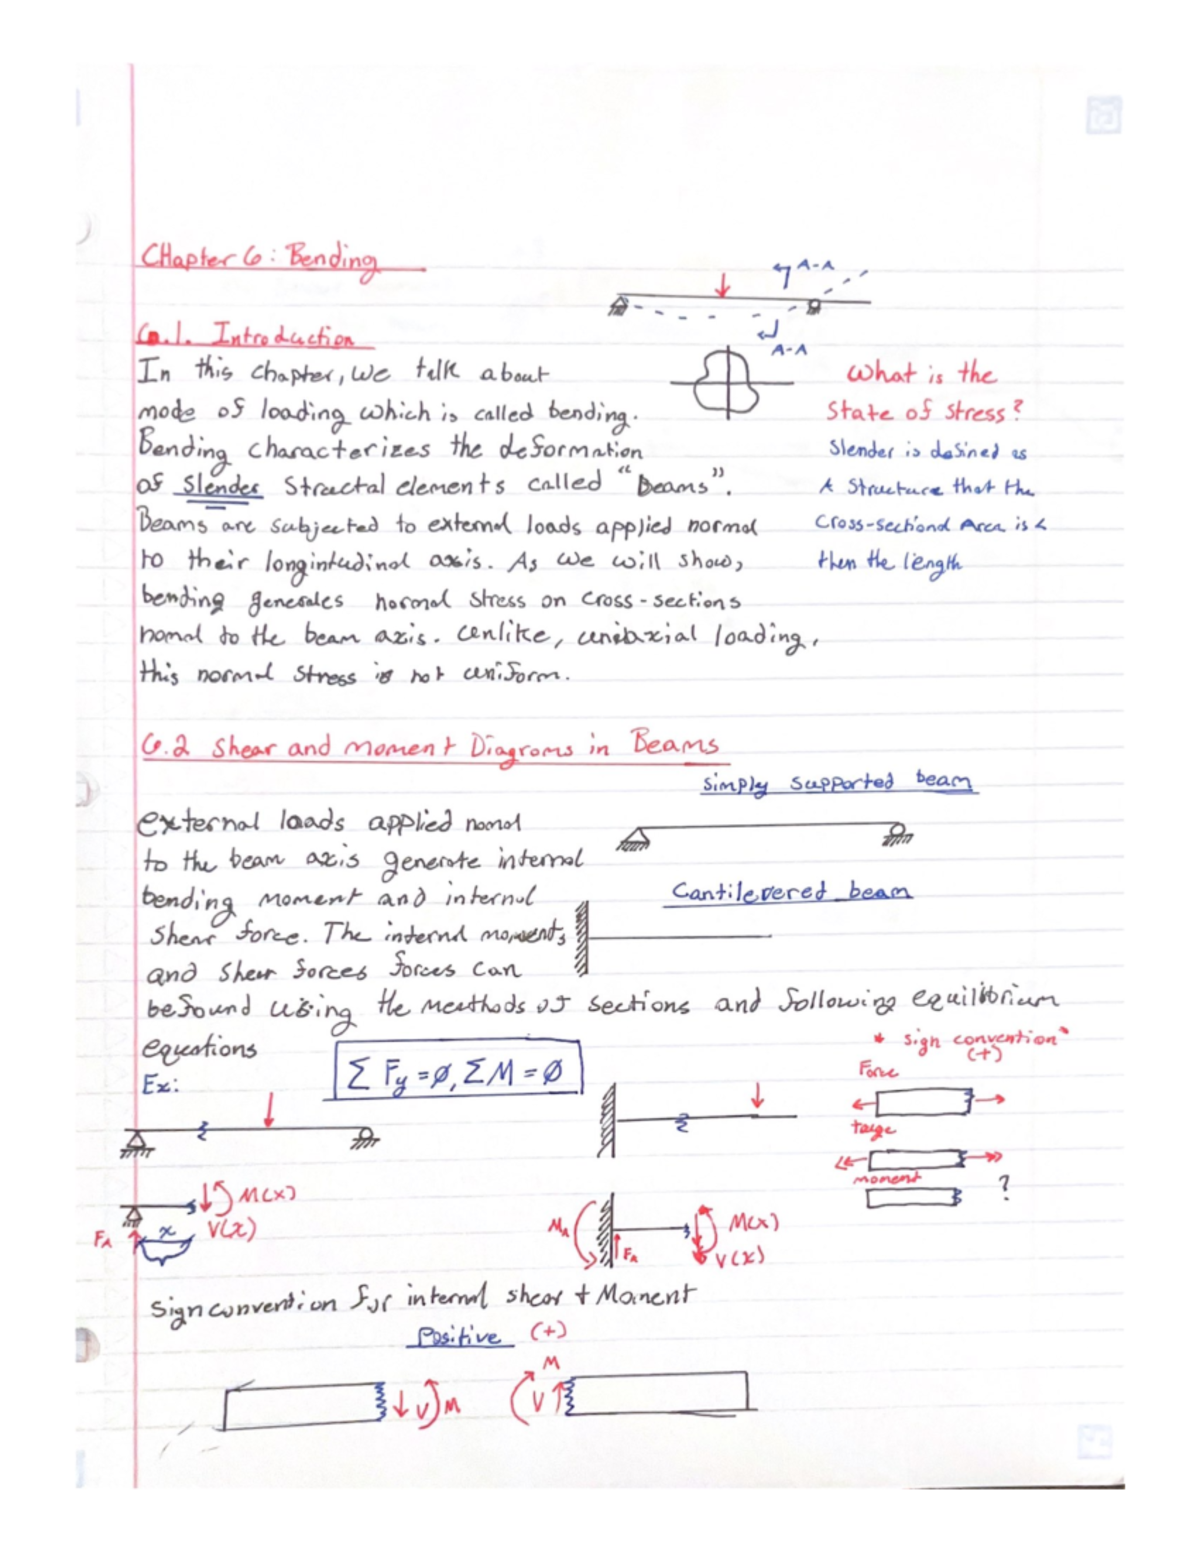 CHapter 6: Bending
A-A
6.1. Introduction
A-A
In this chapter, we talk about
mode of loading which is called bending.
Bending characterizes the deformation
of slender Structal elements called "Beams".
Beams are subjected to external loads applied normal
to their longintudinal axis. As we will show,
bending generates normal stress on cross-sections
normal to the beam axis. Unlike, uniaxial loading,
this normal stress is not uniform.
What is the
State of stress?
Slender is defined as
A Structure that the
Cross-sectional Area is <
then the length
6.2 Shear and moment Diagrams in Beams
Simply supported beam
external loads applied normal
to the beam axis generate internal
bending moment and internal
Cantilevered beam
Shear force. The internal moments
and shear forces forces can
be found using the meathods of sections and following equilibrium
equations
Σ Fy = Ø, Σ M = Ø
* sign convention*
(+)
Ex:
Force
moment
?
M(x)
V(x)
FA
x
MA
FA
M(x)
V(x)
Sign convention for internal shear + Moment
Positive (+)
V M
M
V